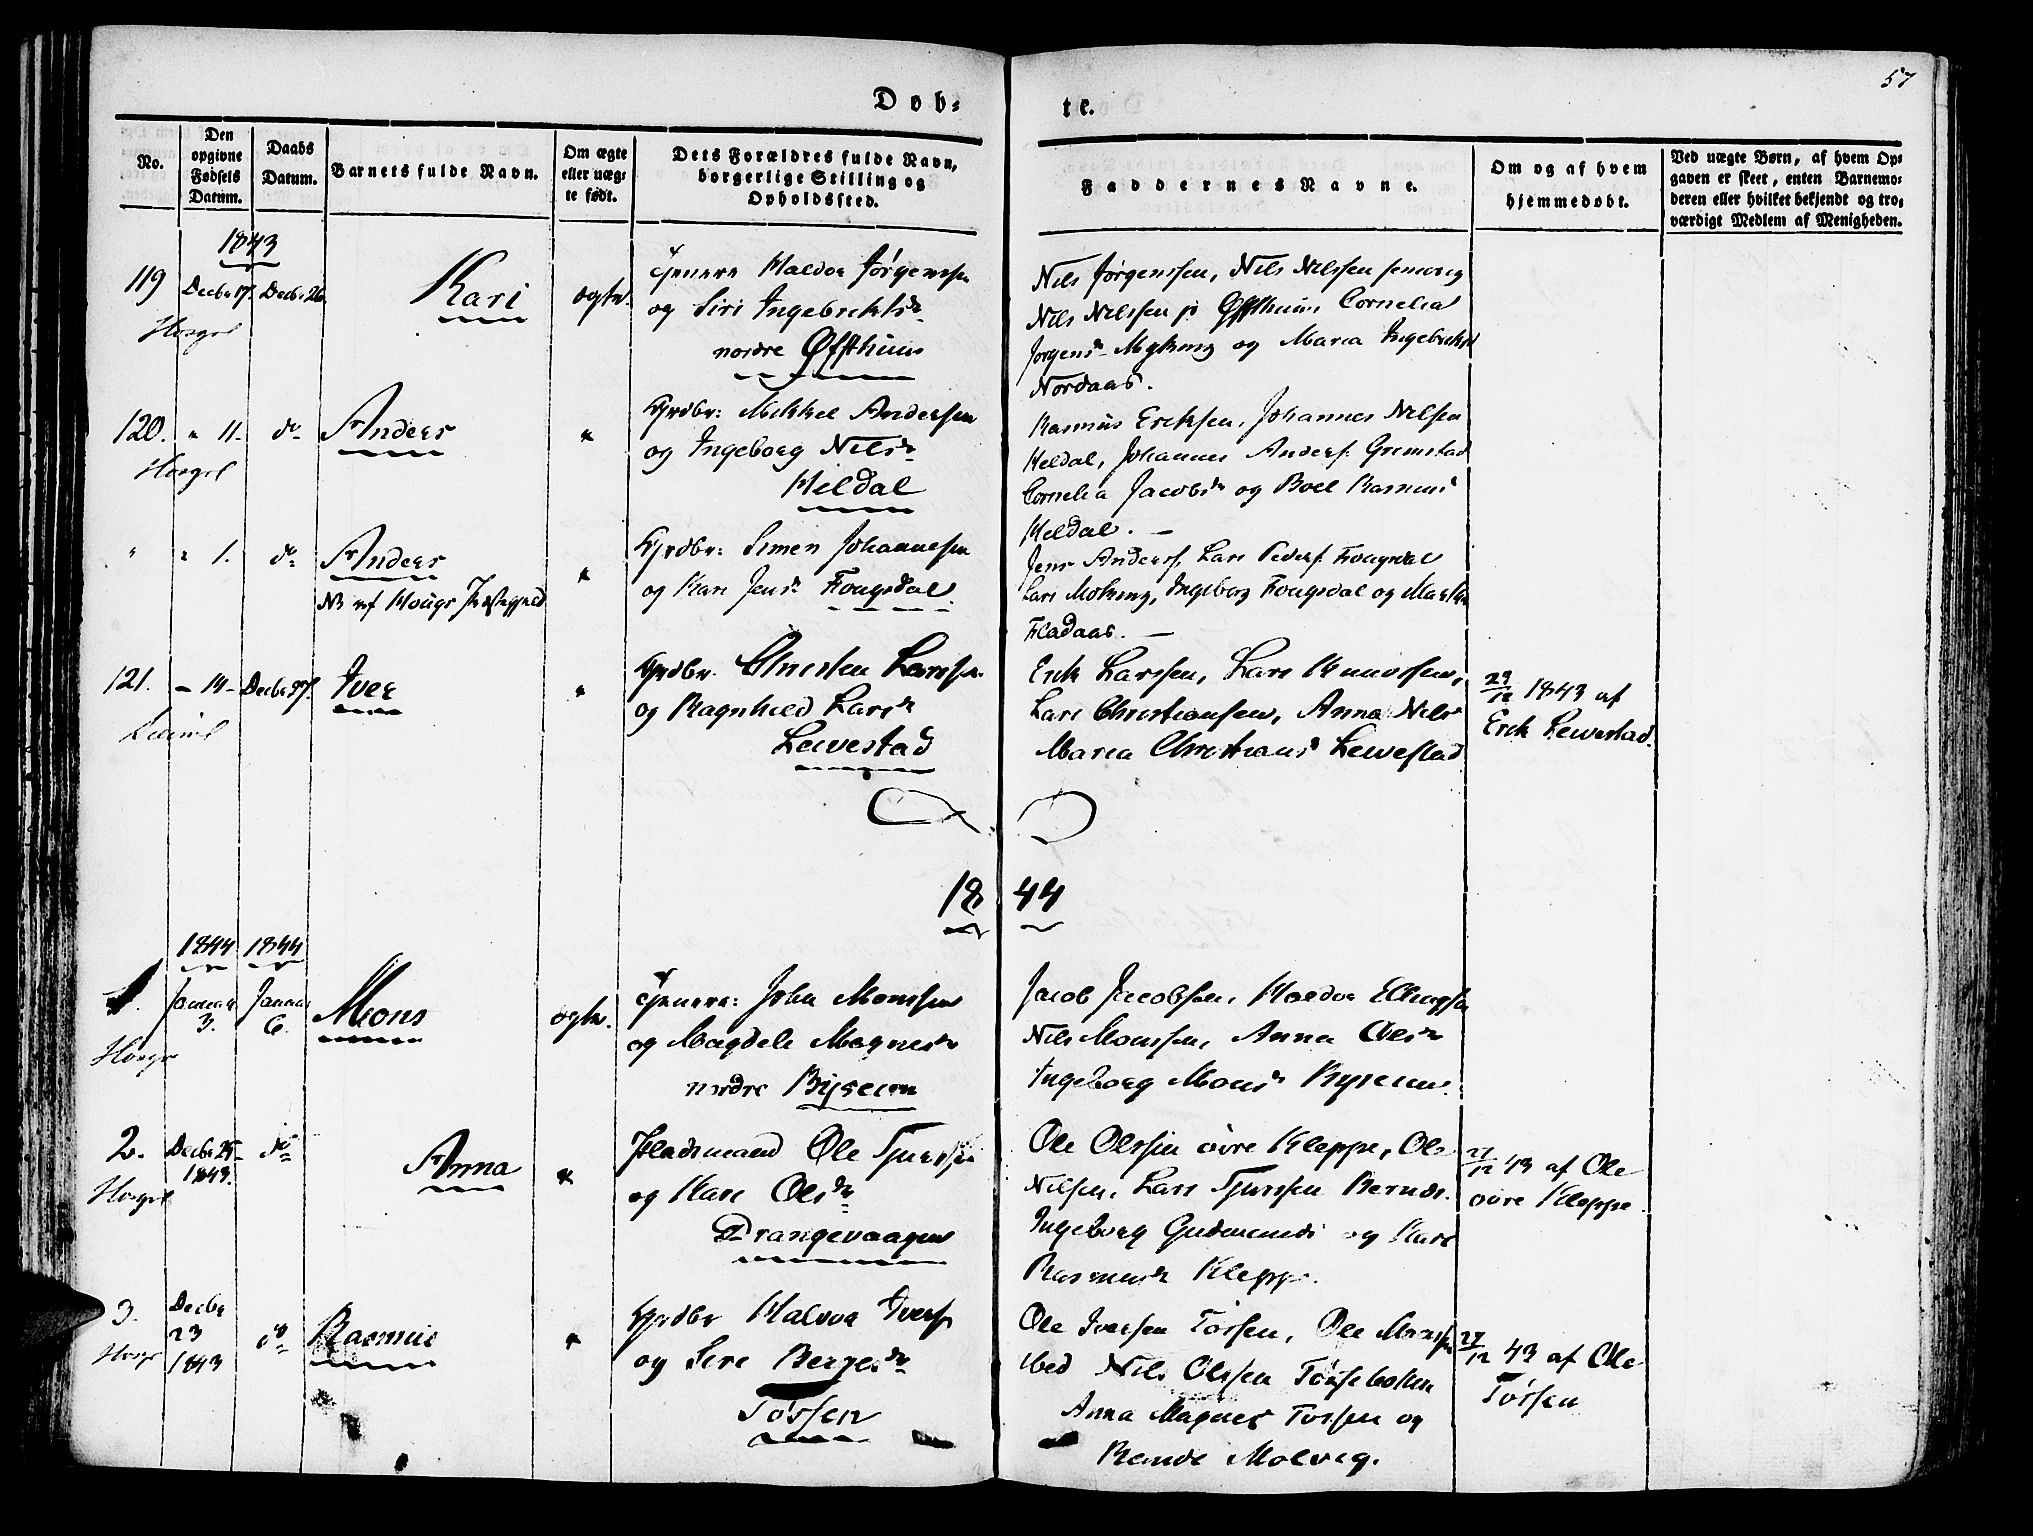 57
Døb=
te.
No.
Den
opgivne
Fødsels
Datum.
Daabs
Datum.
Barnets fulde Navn.
Om ægte
eller uæg-
te født.
Dets Forældres fulde Navn,
borgerlige Stilling og
Opholdssted.
Faddernes Navne.
Om og af hvem
hjemmedøbt.
Ved uægte Børn, af hvem Op-
gaven er skeet, enten Barnemo-
deren eller hvilket bekjendt og tro-
værdigt Medlem af Menigheden.
1843
119
Decbr 17.
Decbr 26.
Kari
ægte.
Haldor Jørgenssen
og Siri Ingebrektsdr
nordre Øffthuus
Nils Jørgenssen, Nils Nilssen
Nils Nilssen Cornelia
Jørgensdr og Maria Ingebrektsd
Nordaas.
120.
" 11.
do
Anders
"
Grdbr: Mikkel Andersen
og Ingeborg Nilsdr
Heldal
Rasmus Eriksen, Johannes Nilsen
Heldal, Johannes Anders. Grimstad
Cornelia Jacobsdr og Boel Rasmus
Heldal. —
"
" 1.
do
Anders
NB af Hougs Præstegjeld
"
Grdbr: Simen Johannesen
og Kari Jensdr Fougsdal.
Jens Anders. Lars Peders. Fougsdal
Lars Ingeborg Fougsdal og
Fladaas. —
121.
— 14 —
Decbr 27.
Iver
"
Grdbr. Christen Larssen
og Ragnhild Larsdr
Lewestad
Erik Larssen, Lars Knudssen,
Lars Christiansen, Anna Nils
Maria Christians Lewestad
29/12 1843 af
Erik Lewestad.
18 44
1844
1844
1.
Januar
3.
Januar
6.
Mons
ægte.
John Monssen
og Magdeli Magnesdr
nordre Bysæen
Jacob Jacobsen, Haldor Ellingsen
Nils Monssen, Anna Olsdr
Ingeborg Monsdr
2.
Decbr 25
1843.
do
Anna
"
Pladsmand Ole
og Kari Olsdr
Drangevaagen
Ole Olssen øvre Kleppe, Ole
Nilsen, Lars
Ingeborg Gudmunds og Kari
Rasmusdr Kleppe.
27/12 43 af Ole
øvre Kleppe.
3.
Decbr
23
1843
do
Rasmus
"
Grdbr Haldor Ivers.
og Siri Bergesdr
Tøssen
Ole Iversen Tøssen, Ole Monssen
ibid Nils Olssen
Anna Magnes Tøssen og
Molvig.
27/12 43 af Ole
Tøssen